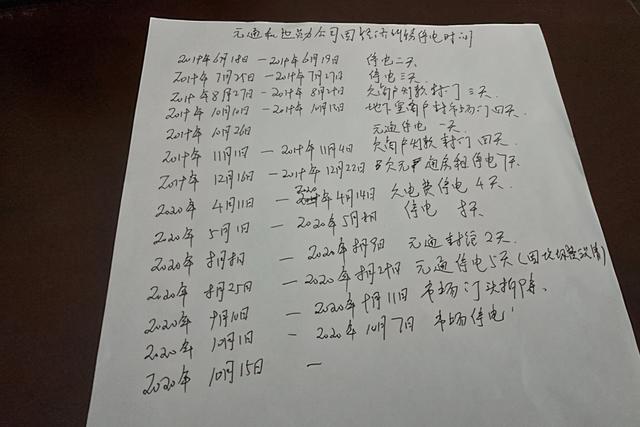 元通机电公司因经济纠纷停电时间
2019年6月18日 — 2019年6月19日 停电二天
2019年7月25日 — 2019年7月27日 停电三天
2019年8月27日 — 2019年8月29日 欠商户对款封门三天
2019年10月10日 — 2019年10月13日 地下室商户封市场门四天
2019年10月26日 元通停电一天
2019年11月1日 — 2019年11月4日 欠商户对款封门四天
2019年12月16日 — 2019年12月22日 欠元通房租停电7天
2020年4月11日 — 2020年4月14日 欠电费停电4天
2020年5月1日 — 2020年5月8日 停电8天
2020年8月8日 — 2020年8月9日 元通封馆2天
2020年8月25日 — 2020年8月29日 元通停电5天(因
2020年9月10日 — 2020年9月11日 市场门头拆
2020年10月1日 — 2020年10月7日 市场停电
2020年10月15日 —